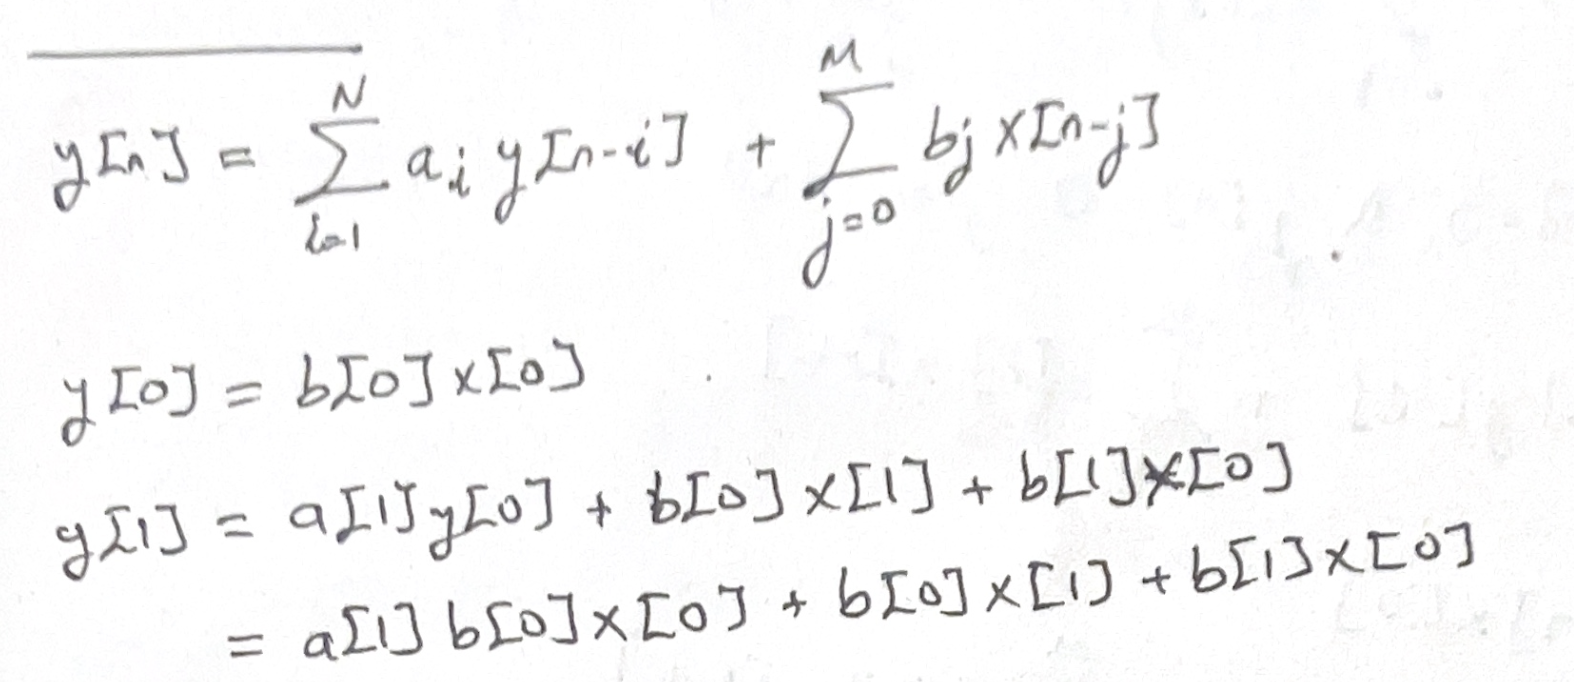 y[n] = \sum_{i=1}^{N} a_i y[n-i] + \sum_{j=0}^{M} b_j x[n-j]
y[0] = b[0] x[0]
y[1] = a[1] y[0] + b[0] x[1] + b[1] x[0]
= a[1] b[0] x[0] + b[0] x[1] + b[1] x[0]